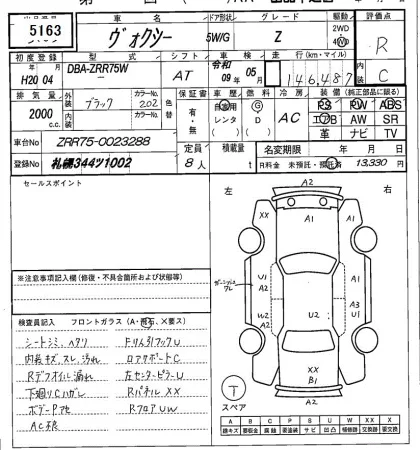 5163
車名 ドア形状 グレード 駆動 評価点
ヴォクシー 5W/G Z 2WD 4WD R
初度登録 型式 シフト 車検 走行(km・マイル) 内装
H20 04 DBA-ZRR75W AT 令和 09年 05月 146,487 C
排気量 外装 カラーNo. 色替 保証書 車歴 燃料 冷房 装備(純正部品に限る)
2000 c.c. ブラック 202 有・無 自家用 レンタ G D AC PS PW ABS
エアB AW SR
革 ナビ TV
車台No ZRR75-0023288 定員 積載量 名変期限 年 月 日
登録No 札幌344ツ1002 8人 R料金 未預託・預託済 13,330円
セールスポイント
※注意事項記入欄(修復・不具合箇所および状態等)
検査員記入 フロントガラス(A・飛石、×要ス)
シートシミ、ヘタリ
内装キズ、スレ、汚れ
Rデフオイル漏れ
下廻りCハガレ
ボデーPアセ
左センターピラーU
Rパネル XX
Rフロア UW
左 右
A2
XX A1 A1
U1 A2 A1
A3 U1
W2 A2 U2 U2
XX
B1
A2
T
スペア
A B C P S U W X XX
線キズ 要板金 腐蝕 要塗装 サビ 凹凸 補修跡 要交換 交換跡